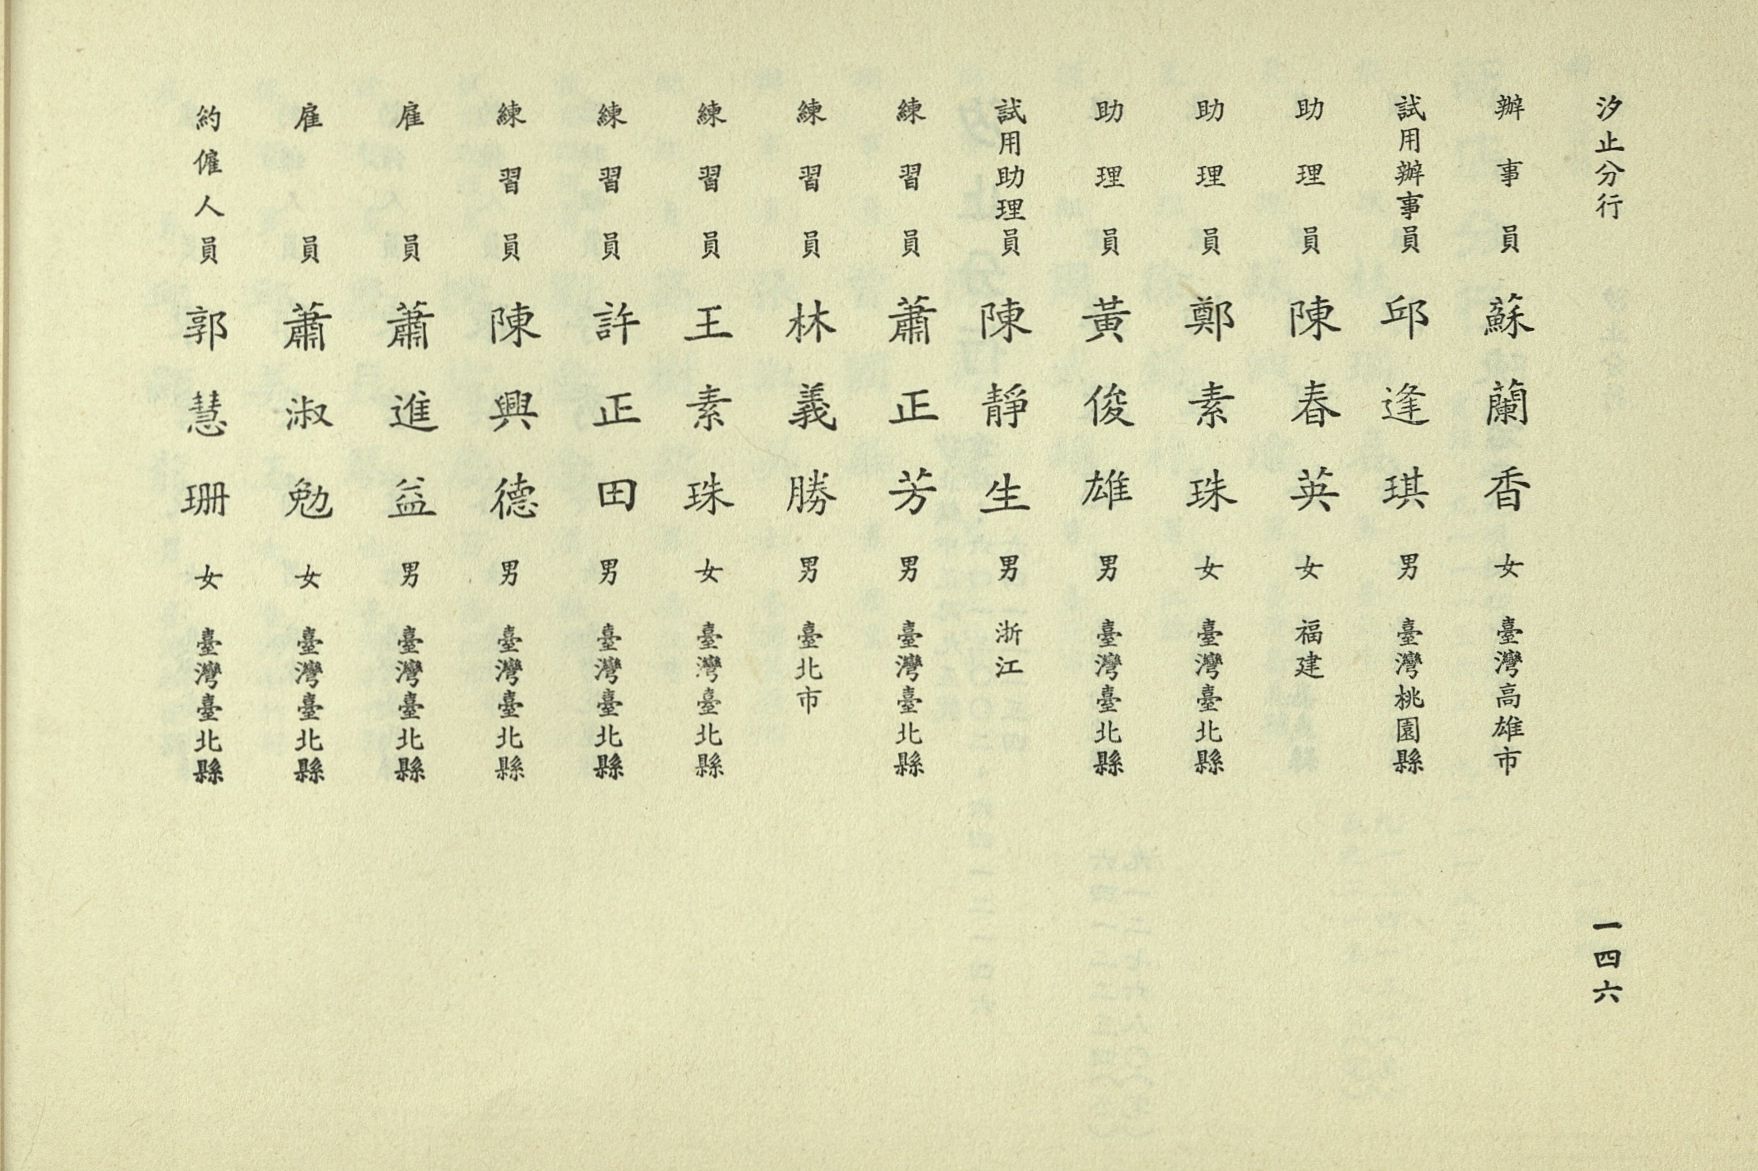 汐止分行
一四六
辦事員 蘇蘭香 女 臺灣高雄市
試用辦事員 邱逢琪 男 臺灣桃園縣
助理員 陳春英 女 福建
助理員 鄭素珠 女 臺灣臺北縣
助理員 黃俊雄 男 臺灣臺北縣
試用助理員 陳靜生 男 浙江
練習員 蕭正芳 男 臺灣臺北縣
練習員 林義勝 男 臺北市
練習員 王素珠 女 臺灣臺北縣
練習員 許正田 男 臺灣臺北縣
練習員 陳興德 男 臺灣臺北縣
雇員 蕭進益 男 臺灣臺北縣
雇員 蕭淑勉 女 臺灣臺北縣
約僱人員 郭慧珊 女 臺灣臺北縣